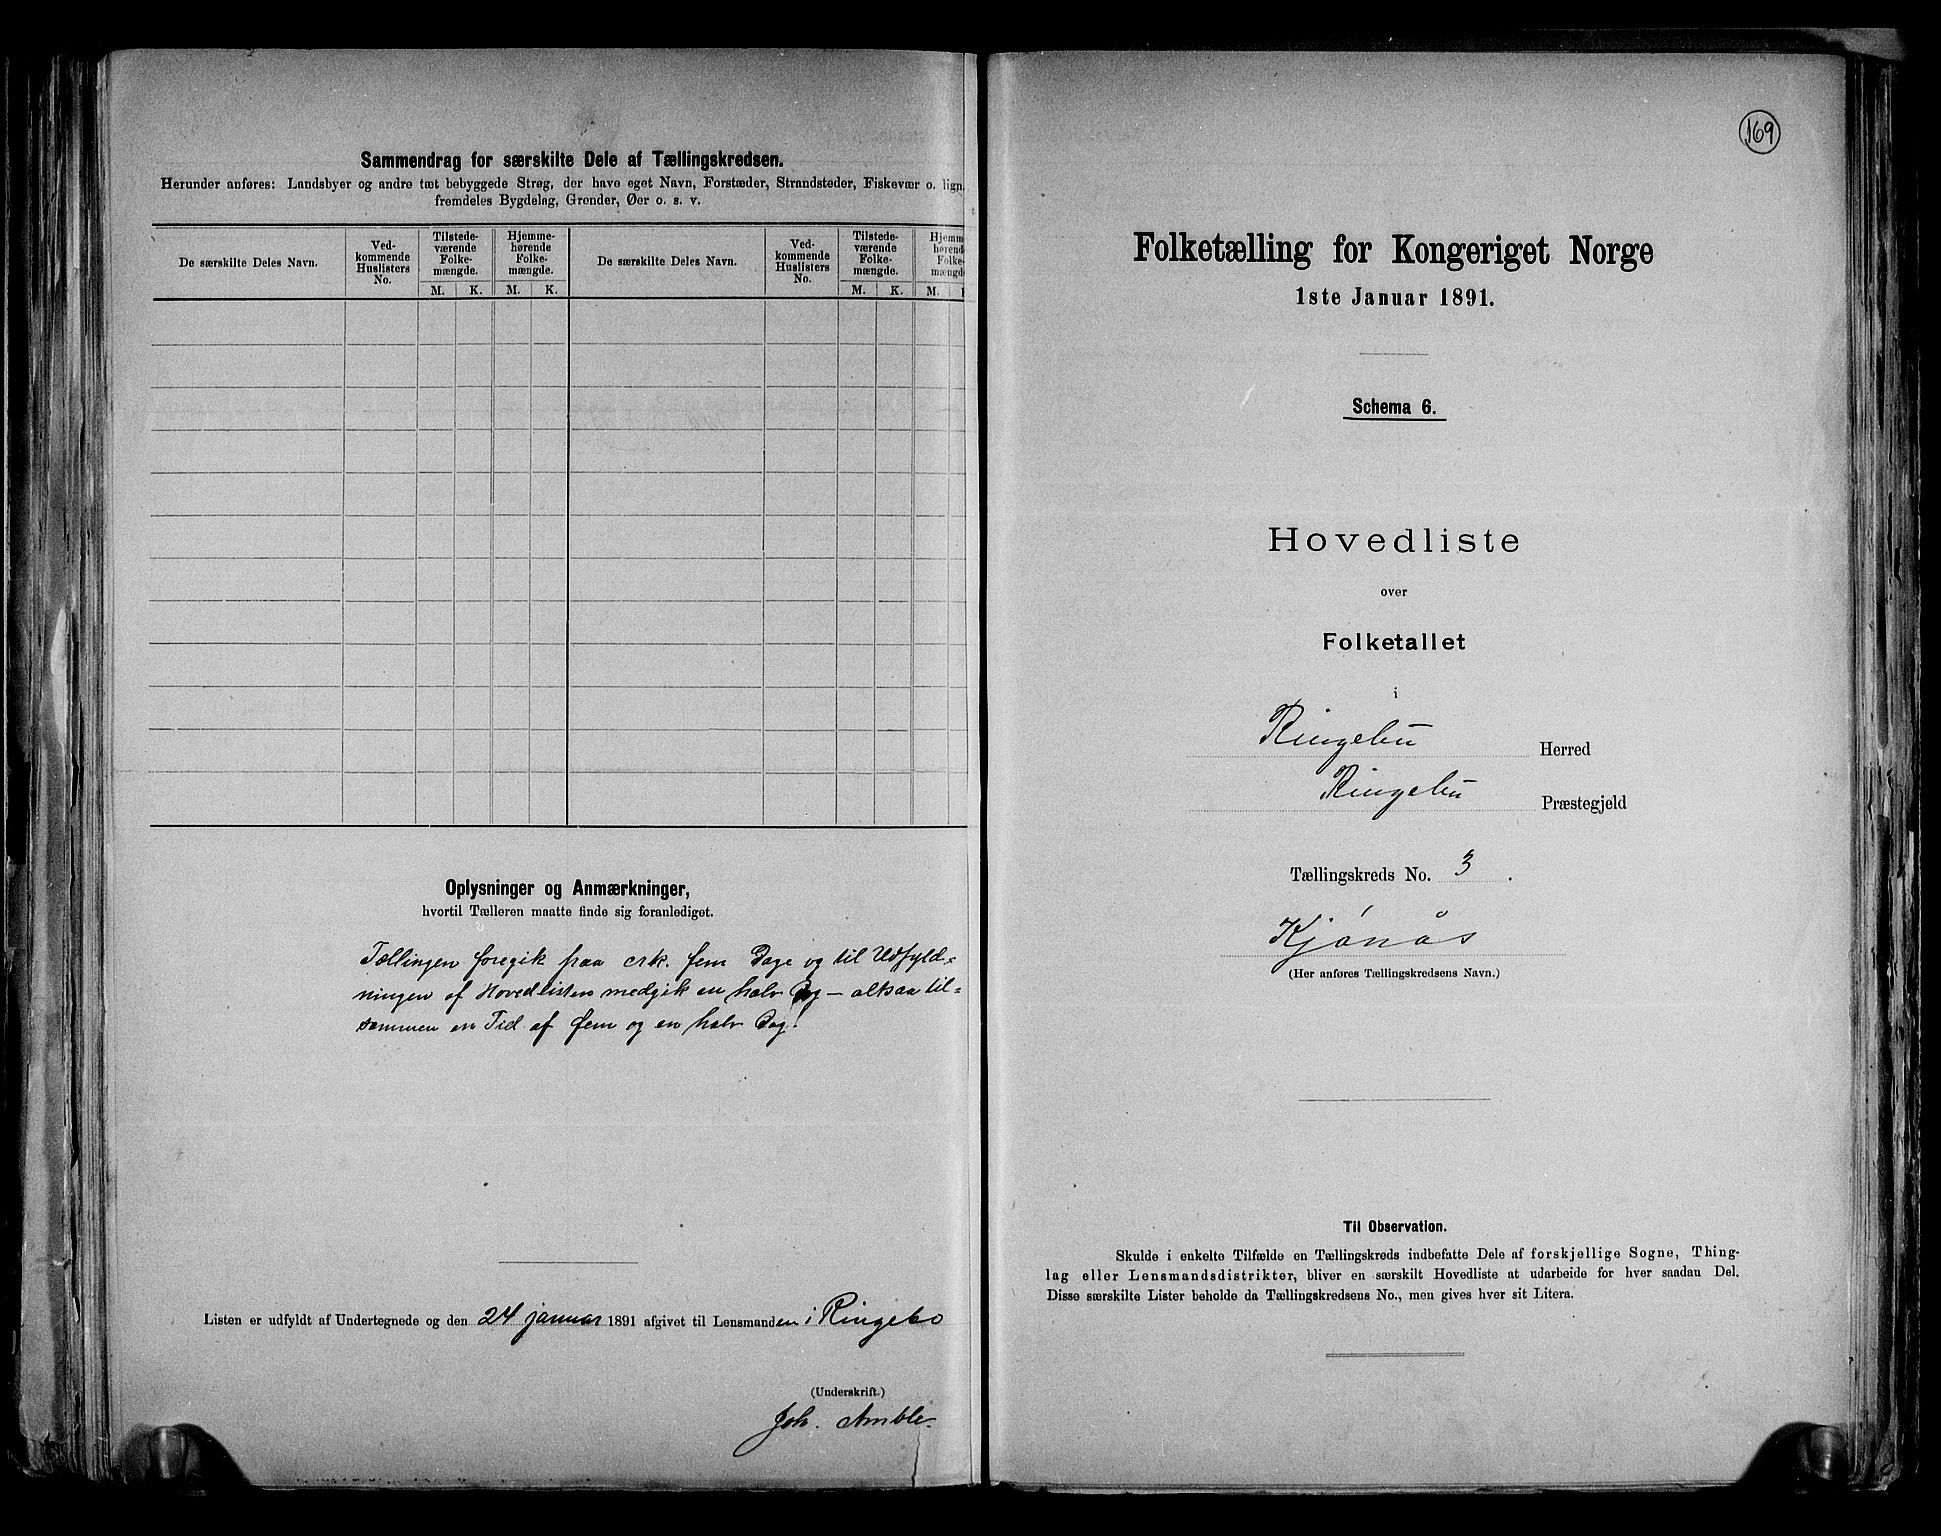 Sammendrag for særskilte Dele af Tællingskredsen.
Herunder anføres: Landsbyer og andre tæt bebyggede Strøg, der have eget Navn, Forstæder, Strandsteder, Fiskevær o. lign.
fremdeles Bygdelag, Grender, Øer o. s. v.
De særskilte Deles Navn.
Ved-
kommende
Huslisters
No.
Tilstede-
værende
Folke-
mængde.
M. K.
Hjemme-
hørende
Folke-
mængde.
M. K.
De særskilte Deles Navn.
Ved-
kommende
Huslisters
No.
Tilstede-
værende
Folke-
mængde.
M. K.
Hjemm
hørend
Folke-
mængd
M.
Oplysninger og Anmærkninger,
hvortil Tælleren maatte finde sig foranlediget.
Tællingen foregik fraa crk. fem Dage og til Udfyld-
ningen af Hovedlisten medgik en halv Dag – altsaa til-
sammen en Tid af fem og en halv Dag!
Listen er udfyldt af Undertegnede og den 24 januar 1891 afgivet til Lensmanden i Ringebo
(Underskrift.)
Joh. Amble.
169
Folketælling for Kongeriget Norge
1ste Januar 1891.
Schema 6.
Hovedliste
over
Folketallet
i
Ringebu Herred
Ringebu Præstegjeld
Tællingskreds No. 3.
Kjönås
(Her anføres Tællingskredsens Navn.)
Til Observation.
Skulde i enkelte Tilfælde en Tællingskreds indbefatte Dele af forskjellige Sogne, Thing-
lag eller Lensmandsdistrikter, bliver en særskilt Hovedliste at udarbeide for hver saadan Del.
Disse særskilte Lister beholde da Tællingskredsens No., men gives hver sit Litera.